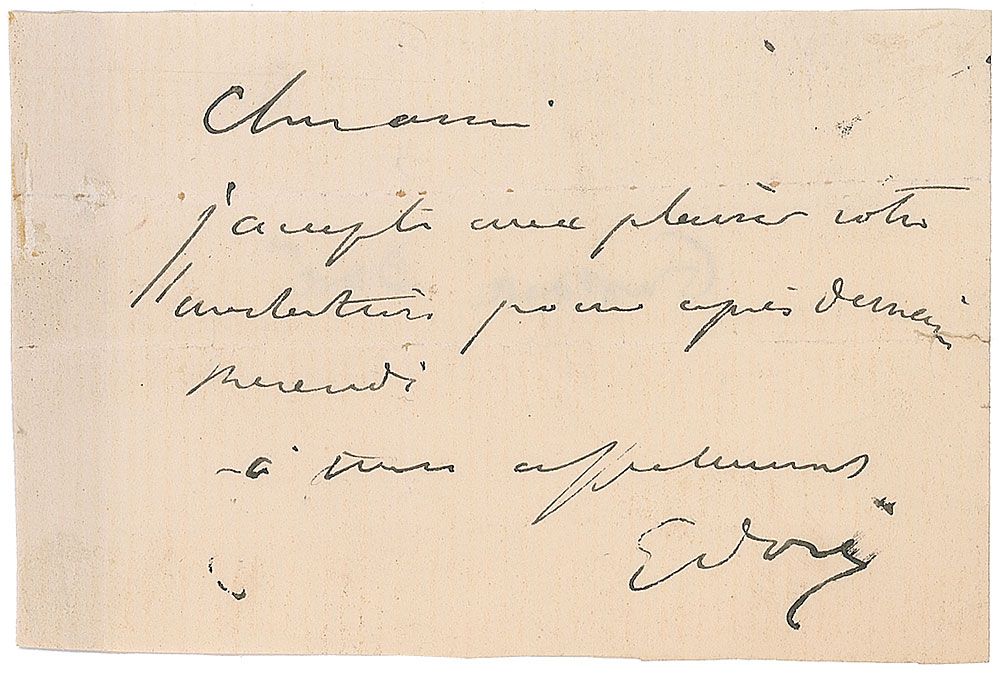 Cher ami
j'accepte avec plaisir votre
invitation pour après demain
mercredi
à vous affectueusement
GDoré